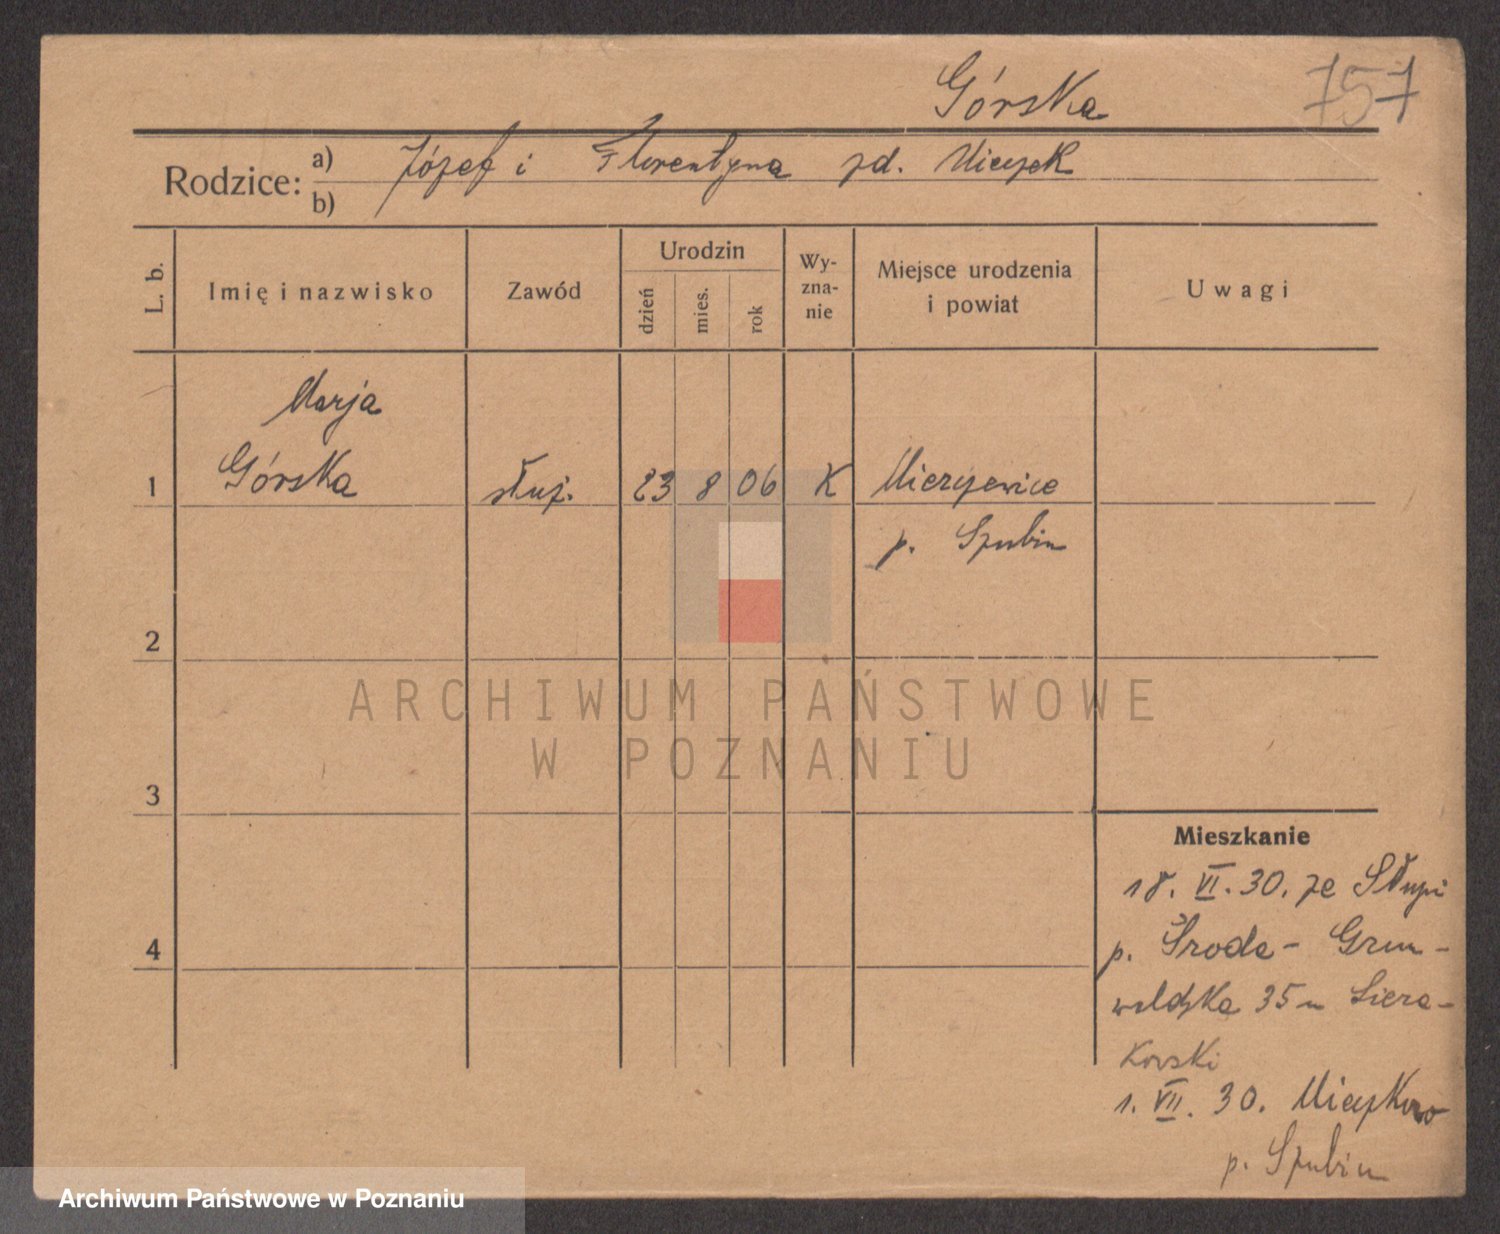 Górska 757
Rodzice: a) Józef i Florentyna zd.
b)
L. b. Imię i nazwisko Zawód Urodzin dzień mies. rok Wy-zna-nie Miejsce urodzenia i powiat Uwagi
Marja
1 Górska służ. 23 8 06 K Mierzewice
p. Szubin
2
ARCHIWUM PAŃSTWOWE
W POZNANIU
3
Mieszkanie
18. VI. 30. ze Słupi
4 p. Środa - Grun-
waldzka 35 u Siera-
kowski
1. VII. 30.
p. Szubin
Archiwum Państwowe w Poznaniu